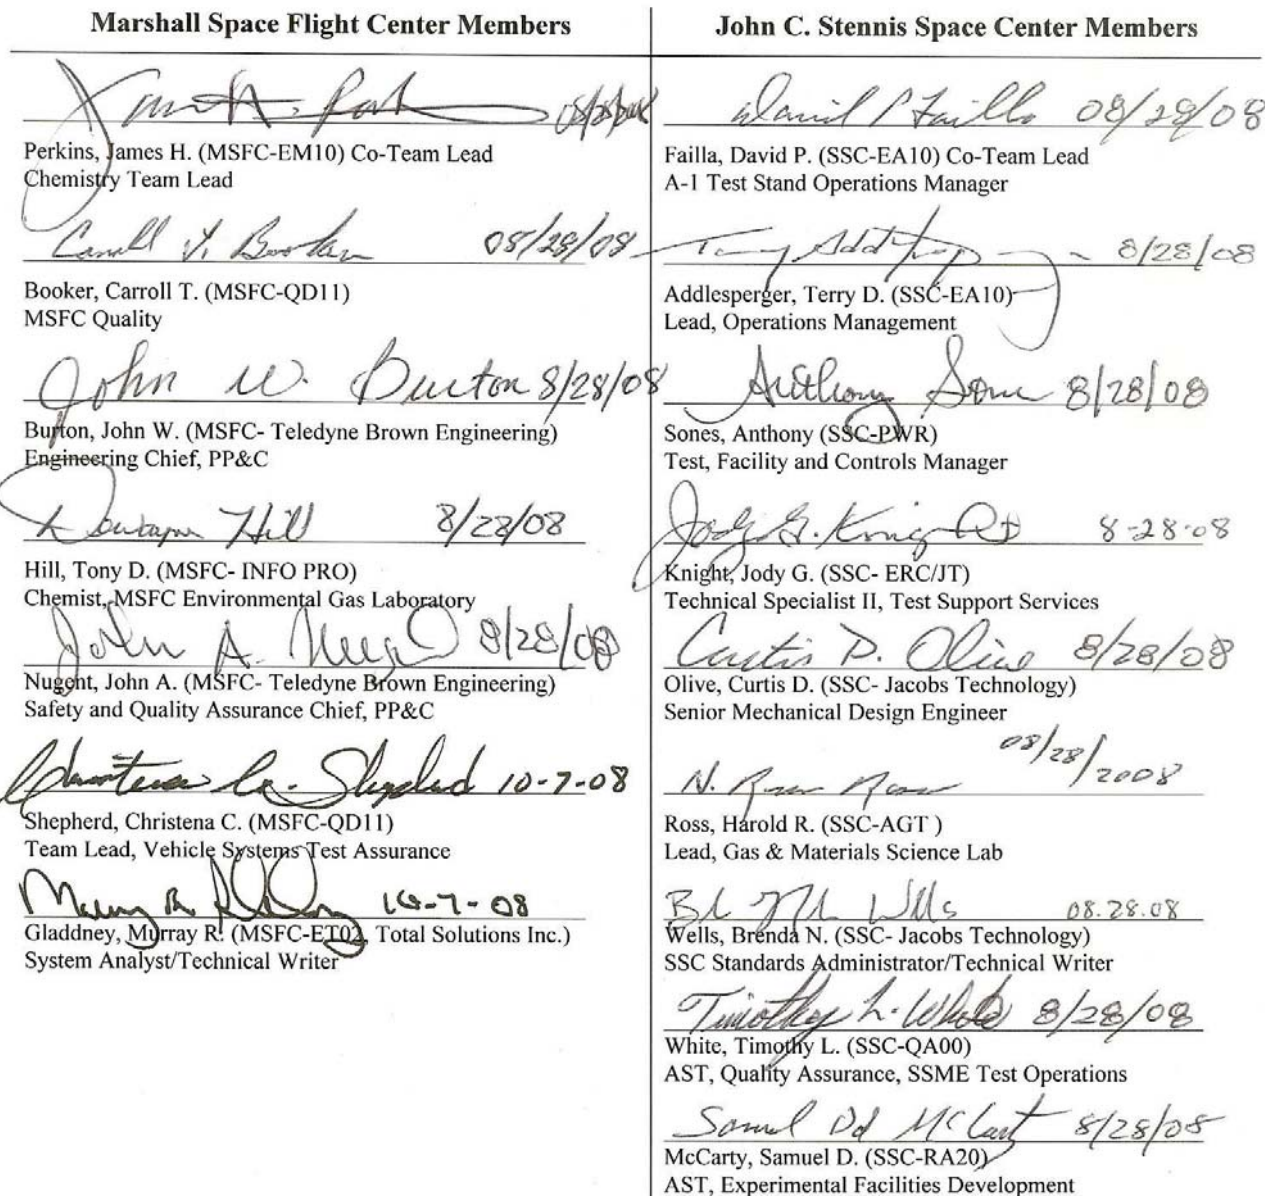 Marshall Space Flight Center Members
James H. Perkins
Perkins, James H. (MSFC-EM10) Co-Team Lead
Chemistry Team Lead
Carroll T. Booker 08/28/08
Booker, Carroll T. (MSFC-QD11)
MSFC Quality
John W. Burton 8/28/08
Burton, John W. (MSFC- Teledyne Brown Engineering)
Engineering Chief, PP&C
Hill 8/28/08
Hill, Tony D. (MSFC- INFO PRO)
Chemist, MSFC Environmental Gas Laboratory
John A. Nugent 8/28/08
Nugent, John A. (MSFC- Teledyne Brown Engineering)
Safety and Quality Assurance Chief, PP&C
Christena C. Shepherd 10-7-08
Shepherd, Christena C. (MSFC-QD11)
Team Lead, Vehicle Systems Test Assurance
Murray R. Gladdney 10-7-08
Gladdney, Murray R. (MSFC-ET02, Total Solutions Inc.)
System Analyst/Technical Writer
John C. Stennis Space Center Members
David P Failla 08/28/08
Failla, David P. (SSC-EA10) Co-Team Lead
A-1 Test Stand Operations Manager
Terry Addlesperger 8/28/08
Addlesperger, Terry D. (SSC-EA10)
Lead, Operations Management
Anthony Sones 8/28/08
Sones, Anthony (SSC-PWR)
Test, Facility and Controls Manager
Jody G. Knight 8-28-08
Knight, Jody G. (SSC- ERC/JT)
Technical Specialist II, Test Support Services
Curtis D. Olive 8/28/08
Olive, Curtis D. (SSC- Jacobs Technology)
Senior Mechanical Design Engineer
08/28/2008
H. Ross
Ross, Harold R. (SSC-AGT )
Lead, Gas & Materials Science Lab
Wells 08.28.08
Wells, Brenda N. (SSC- Jacobs Technology)
SSC Standards Administrator/Technical Writer
Timothy L. White 8/28/08
White, Timothy L. (SSC-QA00)
AST, Quality Assurance, SSME Test Operations
Samuel D McCarty 8/28/08
McCarty, Samuel D. (SSC-RA20)
AST, Experimental Facilities Development